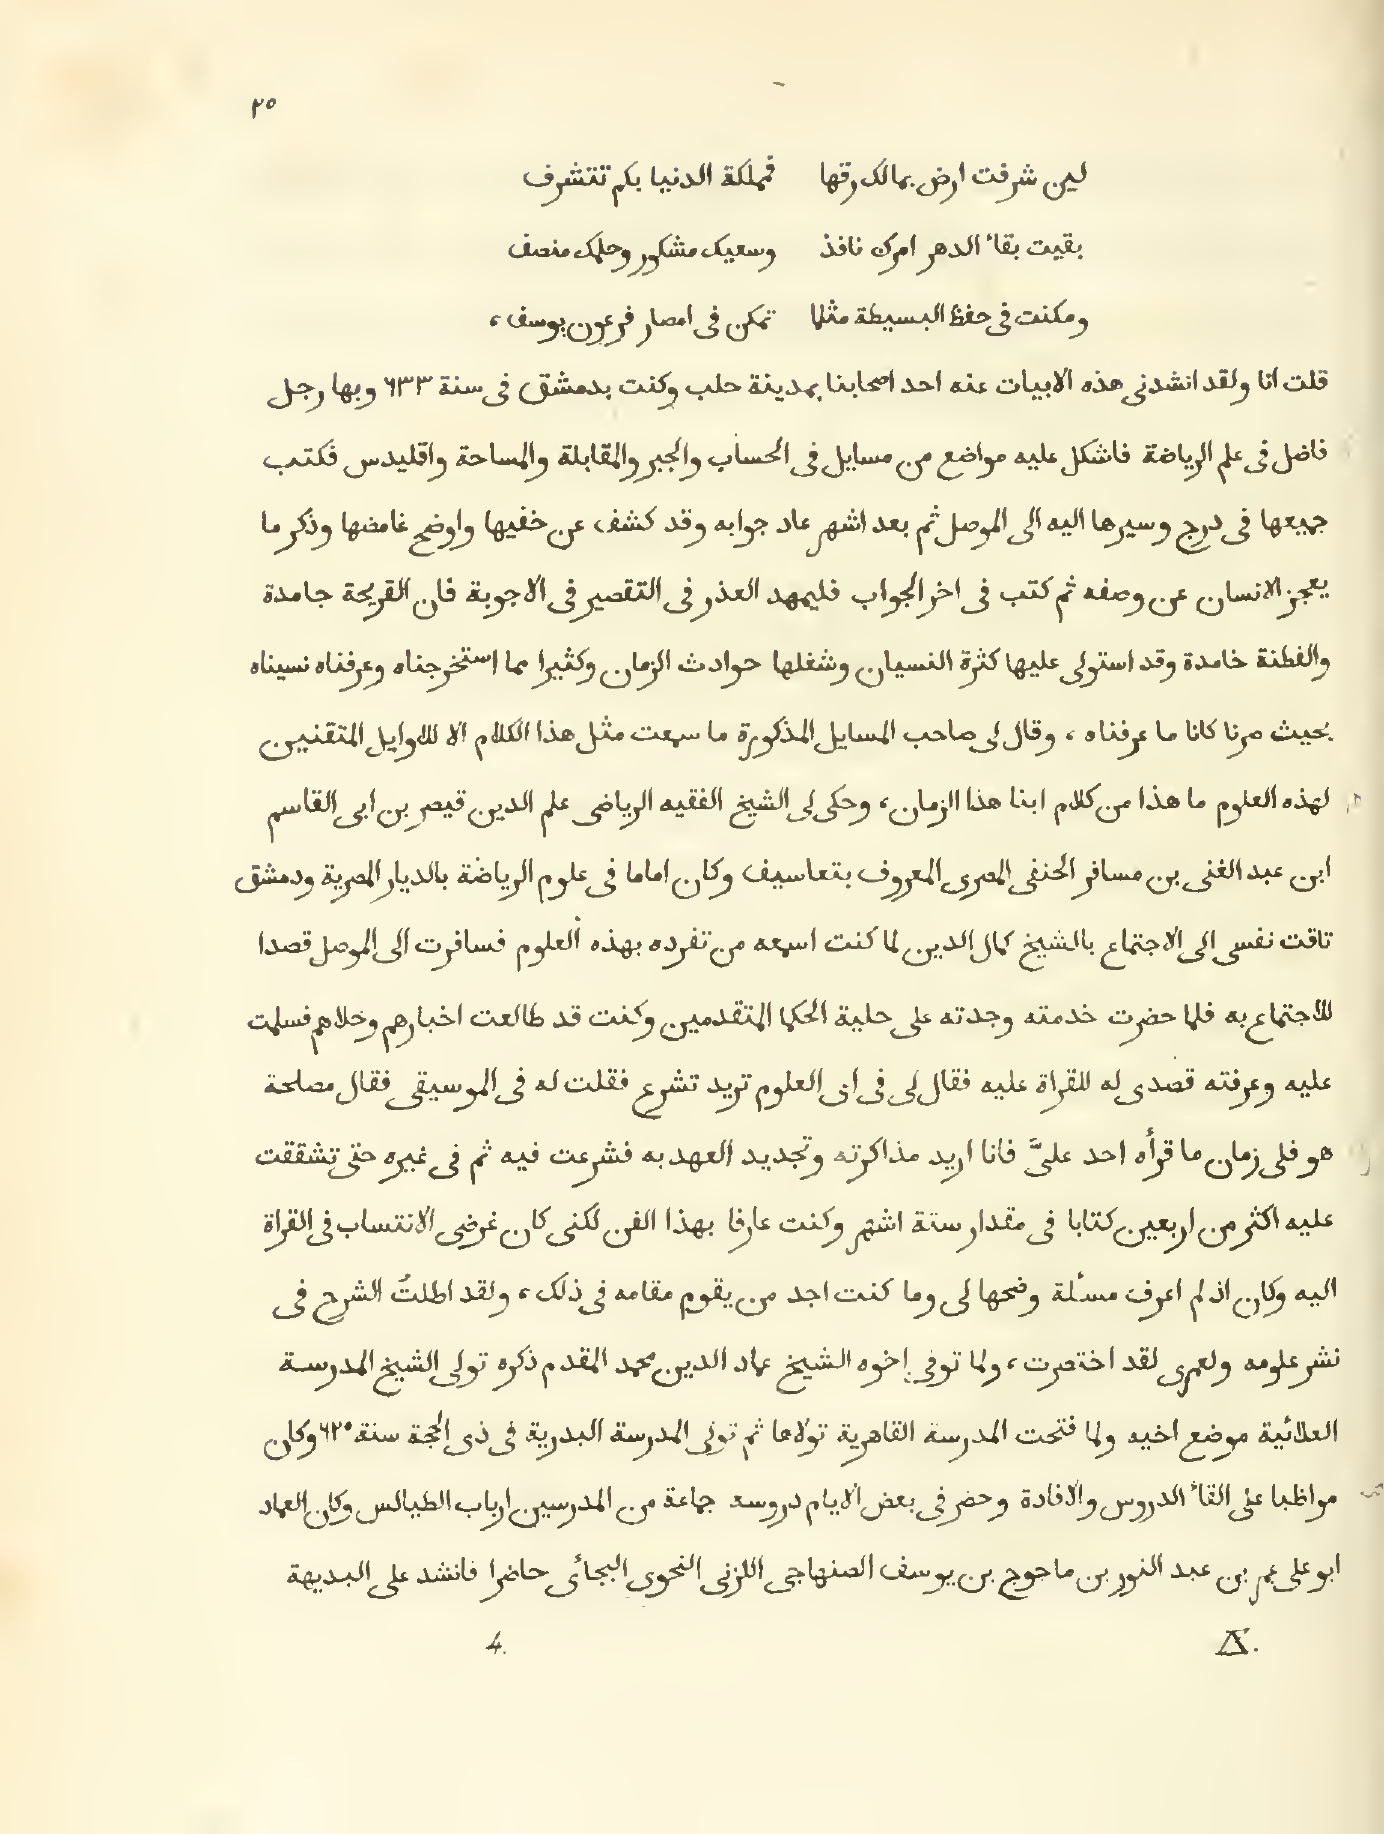 ٢٥
لين شرفت ارض بمالك رقها فمملكة الدنيا بكم تتشرف
بقيت بقاء الدهر امرك نافذ وسعيك مشكور وحلمك منصف
ومكنت فى حفظ البسيطة مثلما تمكن فى امصار فرعون يوسف ،
قلت انا ولقد انشدنى هذه الابيات عنه احد اصحابنا بمدينة حلب وكنت بدمشق فى سنة ٦٣٣ وبها رجل
فاضل فى علم الرياضة فاشكل عليه مواضع من مسايل فى الحساب والجبر والمقابلة والمساحة واقليدس فكتب
جميعها فى درج وسيرها اليه الى الموصل ثم بعد اشهر عاد جوابه وقد كشف عن خفيها واوضح غامضها وذكر ما
يعجز الانسان عن وصفه ثم كتب فى اخر الجواب فليمهد العذر فى التقصير فى الاجوبة فان القريحة جامدة
والفطنة خامدة وقد استولى عليها كثرة النسيان وشغلها حوادث الزمان وكثيرا مما استخرجناه وعرفناه نسيناه
بحيث صرنا كانا ما عرفناه ، وقال لى صاحب المسايل المذكورة ما سمعت مثل هذا الكلام الا للاوايل المتقنين
لهذه العلوم ما هذا من كلام ابنا هذا الزمان ، وحكى لى الشيخ الفقيه الرياضى علم الدين قيصر بن ابى القاسم
ابن عبد الغنى بن مسافر الحنفى المصرى المعروف بتعاسيف وكان اماما فى علوم الرياضة بالديار المصرية ودمشق
تاقت نفسى الى الاجتماع بالشيخ كمال الدين لما كنت اسمعه من تفرده بهذه العلوم فسافرت الى الموصل قصدا
للاجتماع به فلما حضرت خدمته وجدته على حلية الحكما المتقدمين وكنت قد طالعت اخبارهم وحلاهم فسلمت
عليه وعرفته قصدى له للقراة عليه فقال لى فى اى العلوم تريد تشرع فقلت له فى الموسيقى فقال مصلحة
هو فلى زمان ما قرأه احد علىَّ فانا اريد مذاكرته وتجديد العهد به فشرعت فيه ثم فى غيره حتى تشققت
عليه اكثر من اربعين كتابا فى مقدار ستة اشهر وكنت عارفا بهذا الفن لكنى كان غرضى الانتساب فى القراة
اليه وكان اذ لم اعرف مسئلة وضحها لى وما كنت اجد من يقوم مقامه فى ذلك ، ولقد اطلتُ الشرح فى
نشر علومه ولعمرى لقد اختصرت ، ولما توفى اخوه الشيخ عماد الدين محمد المقدم ذكره تولى الشيخ المدرسة
العلائية موضع اخيه ولما فتحت المدرسة القاهرية تولاها ثم تولى المدرسة البدرية فى ذى الحجة سنة ٦٢٠ وكان
مواظبا على القاء الدروس والافادة وحضر فى بعض الايام دروسه جماعة من المدرسين ارباب الطيالس وكان العماد
ابو على عمر بن عبد النور بن ماحوج بن يوسف الصنهاجى اللزنى النحوى البجائى حاضرا فانشد على البديهة
4.